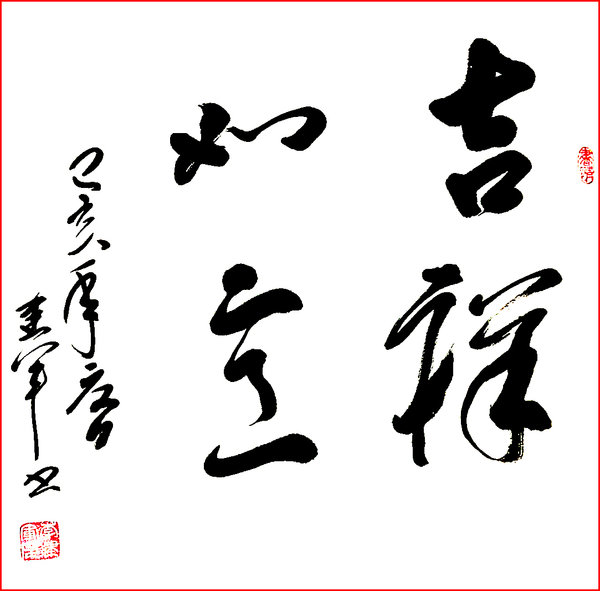 吉祥
如意
己亥年春
春军书